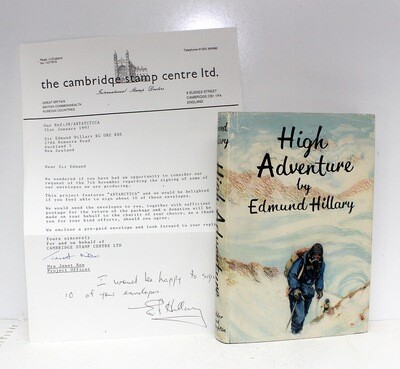 the cambridge stamp centre ltd.
International Stamp Dealers
GREAT BRITAIN
BRITISH COMMONWEALTH
FOREIGN COUNTRIES
9 SUSSEX STREET
CAMBRIDGE CB1 1PA
ENGLAND
Our Ref:JR/ANTARCTICA
31st January 1997
Sir Edmund Hillary KG ONZ KBE
278A Remuera Road
Auckland 5
New Zealand
Dear Sir Edmund
We wondered if you have had an opportunity to consider our
request of the 7th November regarding the signing of some of
our envelopes we are producing.
This project features "ANTARCTICA" and we would be delighted
if you feel able to sign about 10 of these envelopes.
We would send the envelopes to you, together with sufficient
postage for the return of the package and a donation will be
made on your behalf to the charity of your choice, as a thank
you for your kind efforts, should you agree.
We enclose a pre-paid envelope and look forward to your reply
Yours sincerely
for and on behalf of
CAMBRIDGE STAMP CENTRE LTD
Mrs Janet
Project Officer
I would be happy to sign
10 of your envelopes
E P Hillary
High
Adventure
by
Edmund Hillary